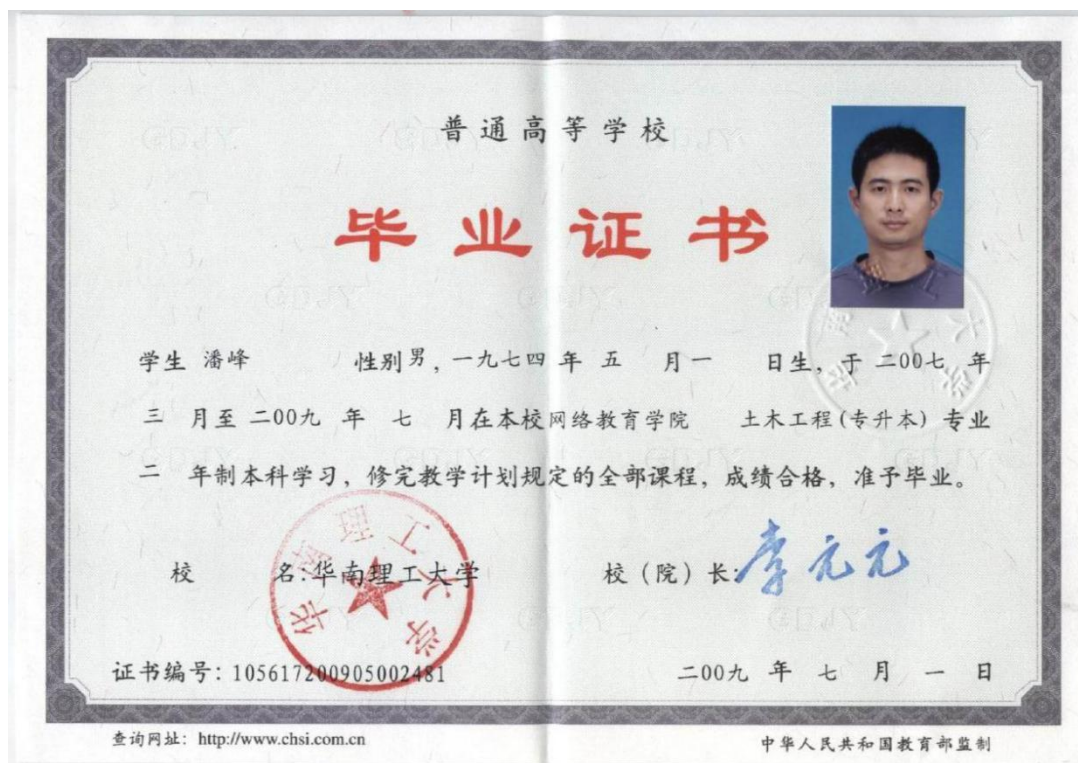 普通高等学校
毕业证书
学生 潘峰 性别 男，一九七四 年 五 月 一 日生，于 二00七 年
三 月至 二00九 年 七 月在本校 网络教育学院 土木工程(专升本) 专业
二 年制本科学习，修完教学计划规定的全部课程，成绩合格，准予毕业。
校 名:华南理工大学 校（院）长:李元元
华南理工大学
证书编号：105617200905002481 二00九 年 七 月 一 日
查询网址：http://www.chsi.com.cn 中华人民共和国教育部监制